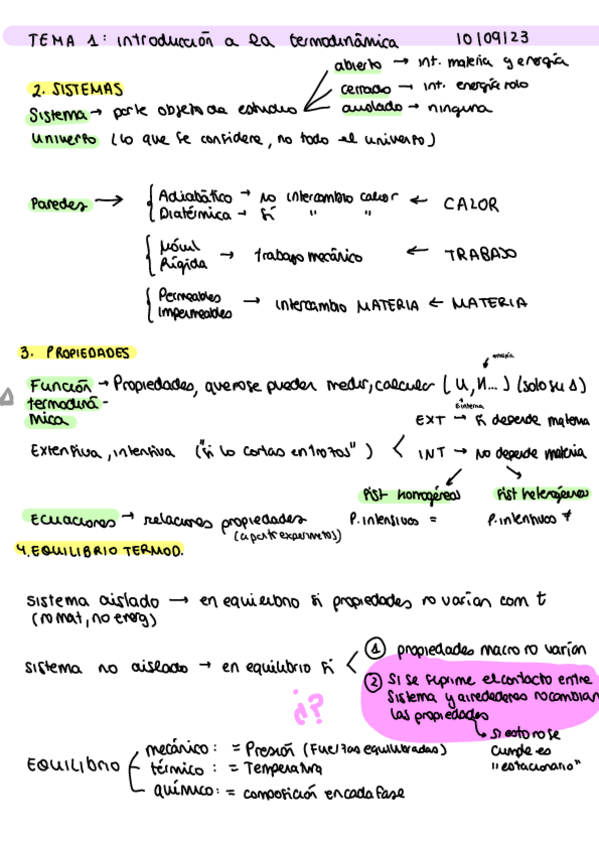 TEMA 1: introducción a la termodinámica 10/09/23
abierto → int. materia y energía
2. SISTEMAS
cerrado → int. energía solo
Sistema → parte objeto de estudio
aislado → ninguna
Universo (lo que se considere, no todo el universo)
Paredes →
Adiabático → no intercambio calor ← CALOR
Diatérmica → sí " "
Móvil
Rígida → trabajo mecánico ← TRABAJO
Permeables
Impermeables → intercambio MATERIA ← MATERIA
3. PROPIEDADES
Función → Propiedades, que no se pueden medir, calcular (U, H...) (solo su Δ)
Δ termodiná-
mica
EXT → sí depende materia
Extensiva, intensiva ("si lo cortas en trozos") INT → No depende materia
sist homogéneos sist heterogéneos
Ecuaciones → relaciones propiedades P. intensivas = P. intensivas ≠
4. EQUILIBRIO TERMOD.
Sistema aislado → en equilibrio si propiedades no varían con t
(no mat, no energ)
① propiedades macro no varían
Sistema no aislado → en equilibrio si
② Si se suprime el contacto entre
Sistema y alrededores no cambian
las propiedades
¿?
Si esto no se
cumple es
"estacionario"
EQUILIBRIO
mecánico: = Presión (Fuerzas equilibradas)
térmico: = Temperatura
químico: = composición en cada fase